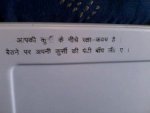 आपकी कुर्सी के नीचे रक्षा-कवच है ।
बैठने पर अपनी कुर्सी की पेटी बाँध लें ।